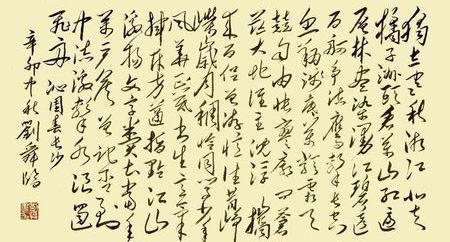 獨立寒秋湘江北去
橘子洲頭看萬山紅遍
層林盡染漫江碧透
百舸爭流鷹擊長空
魚翔淺底萬類霜天
競自由悵寥廓問蒼
茫大地誰主沉浮攜
來百侶曾游憶往昔崢
嶸歲月稠恰同學少年
風華正茂書生意氣
揮斥方遒指點江山
激揚文字糞土當年
萬戶侯曾記否到
中流擊水浪遏
飛舟 沁園春長沙
辛卯中秋劉